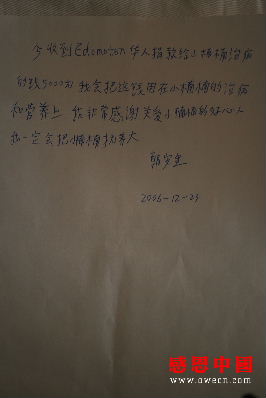 今收到Edomoton华人捐款给小楠楠治病
的钱5000元 我会把这钱用在小楠楠的治病
和营养上 我非常感谢关爱小楠楠的好心人
我一定会把楠楠抚养大
2006-12-23
感恩中國
www.owecn.com